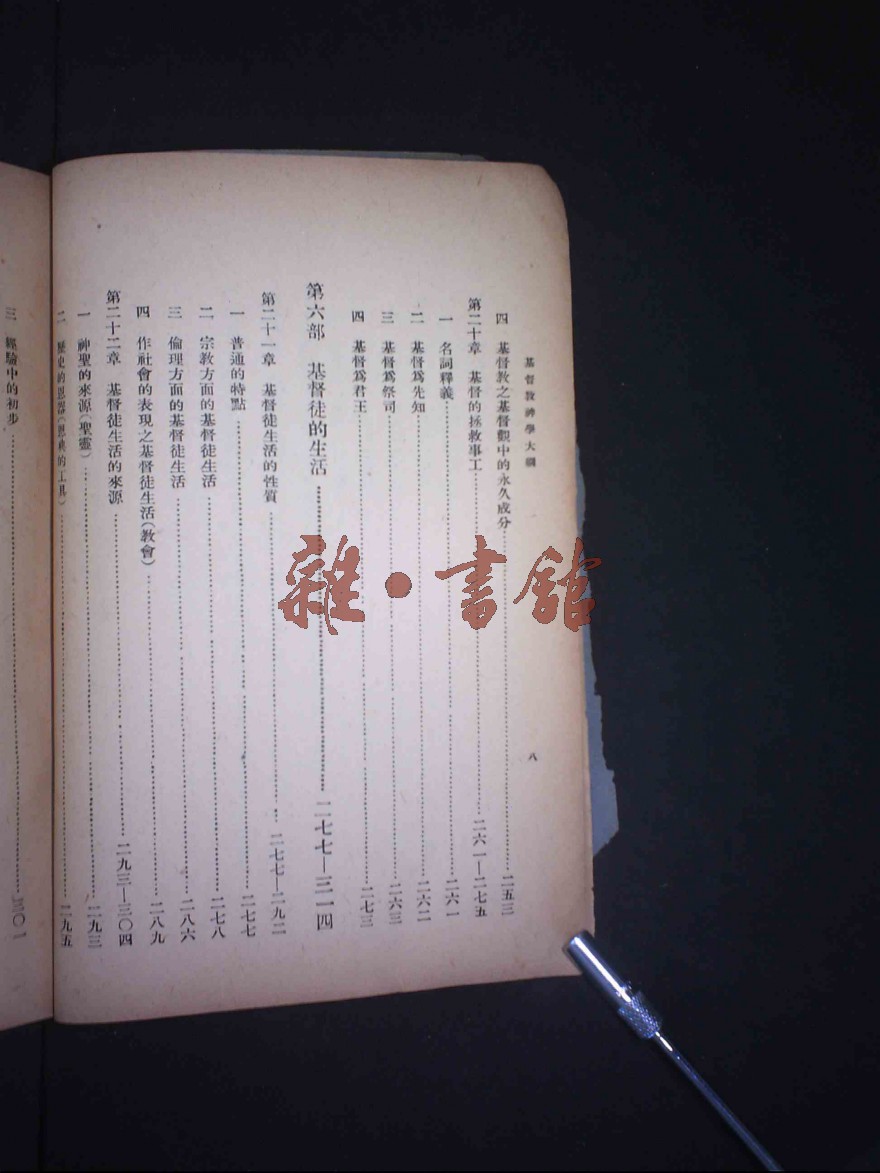 基督教神學大綱
八
四　基督教之基督觀中的永久成分…………二五三
第二十章　基督的拯救事工…………二六一—二七五
一　名詞釋義…………二六一
二　基督爲先知…………二六二
三　基督爲祭司…………二六三
四　基督爲君王…………二七三
第六部　基督徒的生活…………二七七—三一四
第二十一章　基督徒生活的性質…………二七七—二九二
一　普通的特點…………二七七
二　宗教方面的基督徒生活…………二七八
三　倫理方面的基督徒生活…………二八六
四　作社會的表現之基督徒生活(教會)…………二八九
第二十二章　基督徒生活的來源…………二九三—三〇四
一　神聖的來源(聖靈)…………二九三
二　歷史的恩器(恩典的工具)…………二九五
三　經驗中的初步…………三〇一
雜•書館